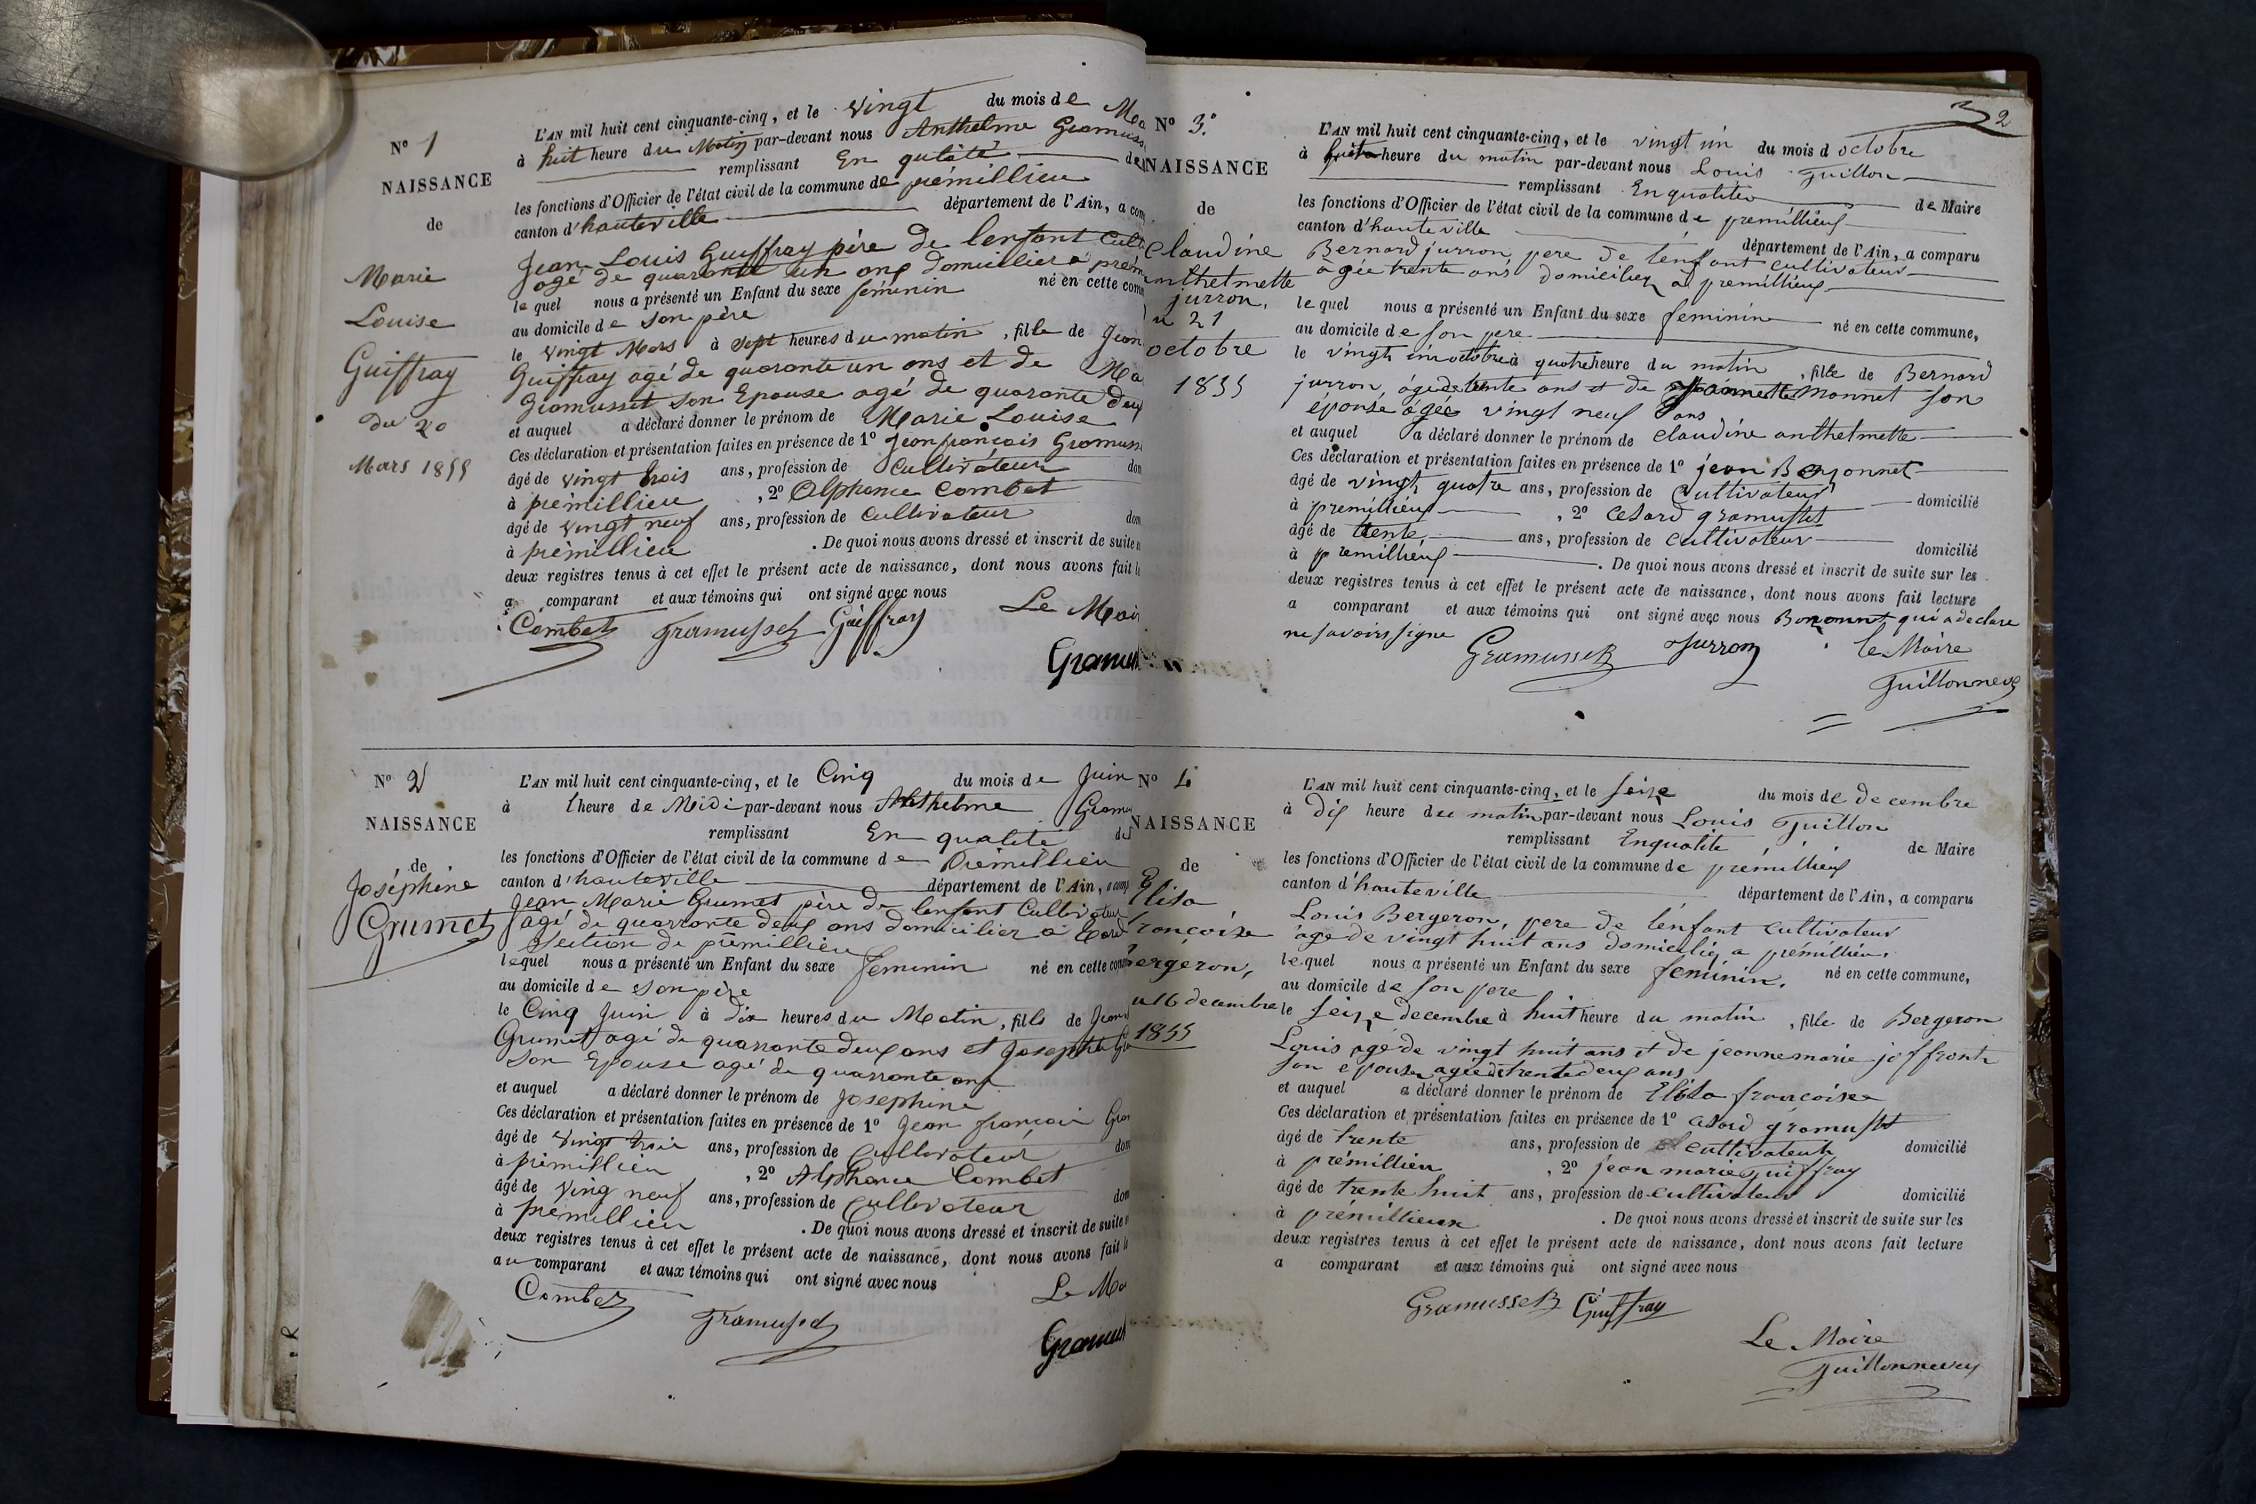 N° 1
NAISSANCE
de
Marie
Louise
Guiffray
du 20
Mars 1855
L'AN mil huit cent cinquante-cinq, et le vingt du mois de
à huit heure du Matin par-devant nous Anthelme Gramuss
remplissant En qulité
les fonctions d'Officier de l'état civil de la commune de prémillieu
canton d'hauteville département de l'Ain, a com
Jean Louis Guiffray père de lenfant Cult
agé de quarante un ans domicilier a prém
le quel nous a présenté un Enfant du sexe féminin né en cette com
au domicile de son père
le vingt Mars à sept heures du matin, fille de Jean
Guiffray agé de quarante un ans et de Ma
Gramusset son Epouse agé de quarante deux
et auquel a déclaré donner le prénom de Marie Louise
Ces déclaration et présentation faites en présence de 1° Jean françois Gramuss
âgé de vingt trois ans, profession de Cultivateur dom
à prémillieu, 2° Alphonse Combet
âgé de vingt neuf ans, profession de Cultivateur dom
à prémillieu. De quoi nous avons dressé et inscrit de suite
deux registres tenus à cet effet le présent acte de naissance, dont nous avons fait le
a comparant et aux témoins qui ont signé avec nous
Combet Gramusset Guiffray Le Mair
Gramus
N° 2
NAISSANCE
de
Joséphine
Grumet
L'AN mil huit cent cinquante-cinq, et le Cinq du mois de Juin
à 1 heure de Midi par-devant nous Anthelme Gramu
remplissant En qualité
les fonctions d'Officier de l'état civil de la commune de Prémillieu
canton d'hauteville département de l'Ain, a comp
Jean Marie Grumet père de lenfant Cultivateur
agé de quarronte deux ans domicilier a
section de prémillieu
le quel nous a présenté un Enfant du sexe feminin né en cette com
au domicile de son père
le Cinq Juin à dix heures du Matin, fils de Jean
Grumet agé de quarronte deux ans et Josephte
son Epouse agé de quarronte ans
et auquel a déclaré donner le prénom de Josephine
Ces déclaration et présentation faites en présence de 1° Jean françois Gram
âgé de vingt trois ans, profession de Cultivateur dom
à prémillieu, 2° Alphonse Combet
âgé de ving neuf ans, profession de Cultivateur dom
à prémillieu. De quoi nous avons dressé et inscrit de suite
deux registres tenus à cet effet le présent acte de naissance, dont nous avons fait le
au comparant et aux témoins qui ont signé avec nous
Combet Gramusset Le Ma
Gramus
2
N° 3°
NAISSANCE
de
Claudine
anthelmette
jurron,
21
octobre
1855
L'AN mil huit cent cinquante-cinq, et le vingt un du mois d octobre
à huit heure du matin par-devant nous Louis Guillon
remplissant En qualite de Maire
les fonctions d'Officier de l'état civil de la commune de premillieux
canton d'hauteville département de l'Ain, a comparu
Bernard jurron pere de lenfant cultivateur
agée trente ans domiciliez a premillieux
le quel nous a présenté un Enfant du sexe feminin né en cette commune,
au domicile de son pere
le vingt un octobre à quatre heure du matin, fille de Bernard
jurron, âgé de trente ans et de Jeannette Monnet son
épouse âgée vingt neuf ans
et auquel a déclaré donner le prénom de claudine anthelmette
Ces déclaration et présentation faites en présence de 1° jean Bonzonnet
âgé de vingt quatre ans, profession de Cultivateur domicilié
à premillieux, 2° Cesard gramusset
âgé de trente ans, profession de Cultivateur domicilié
à premillieux. De quoi nous avons dressé et inscrit de suite sur les
deux registres tenus à cet effet le présent acte de naissance, dont nous avons fait lecture
a comparant et aux témoins qui ont signé avec nous Bonzonnet qui a declare
ne savoirs signe
Gramusset Jurron le Maire
Guillonnevey
N° 4
NAISSANCE
de
Elisa
francoise
Bergeron,
16 decembre
1855
L'AN mil huit cent cinquante-cinq, et le seize du mois de decembre
à Dix heure du matin par-devant nous Louis Guillon
remplissant Enqualite de Maire
les fonctions d'Officier de l'état civil de la commune de prémillieux
canton d'hauteville département de l'Ain, a comparu
Louis Bergeron, pere de l'enfant cultivateur
age de vingt huit ans domicilie a prémillieu.
le quel nous a présenté un Enfant du sexe feminin. né en cette commune,
au domicile de son pere
le seize decembre à huit heure du matin, fille de Bergeron
Louis agé de vingt huit ans et de jeannemarie
son epouse agée de trente deux ans
et auquel a déclaré donner le prénom de Elisa francoise
Ces déclaration et présentation faites en présence de 1° Cesard gramusset
âgé de trente ans, profession de cultivateur domicilié
à prémillieu, 2° jean marie guiffray
âgé de trente huit ans, profession de cultivateur domicilié
à premillieux. De quoi nous avons dressé et inscrit de suite sur les
deux registres tenus à cet effet le présent acte de naissance, dont nous avons fait lecture
a comparant et aux témoins qui ont signé avec nous
Gramusset Guiffray
Le Maire
Guillonnevey